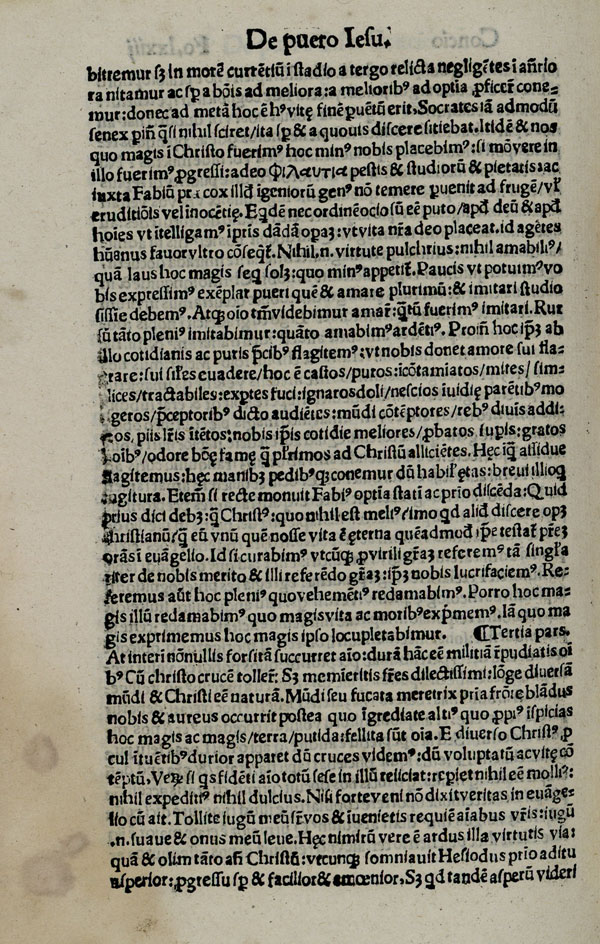 De puero Iesu.
bitremur sꝫ in morē currētiū ī stadio a tergo relicta negligētes ī añrio
ra nitamur ac sꝑ a bōis ad meliora: a melioribꝰ ad optīa ꝓficere cone⸗
mur: donec ad metā hoc ē hꝰ vitę finē puētū erit, Socrates iā admodū
senex ita sꝑ & a quouis discere sitiebat. Itidē & nos
quo magis ī Christo fuerimꝰ hoc minꝰ nobis placebimꝰ: si mō vere in
illo fuerimꝰ ꝓgressi: adeo Φιλαυτια pestis & studiorū & pietatis: ac
iuxta Fabiū illđ īgeniorū genꝰ nō temere ꝑuenit ad frugē/ vł
eruditiōis vel inocētię. Eqdē nec ordinē ocio sū eē puto/ apđ deū & apđ
hoīes vt itelligamꝰ īpris dādā opaꝫ: vt vita nr̄a deo placeat. id agētes
hūanus fauor vltro cōseqł. Nihil .n. virtute pulchrius: nihil amabiliꝰ/
quā laus hoc magis seq solꝫ: quo minꝰ appetiť. Paucis vt potuimꝰ vo
bis expressimꝰ exēplar pueri quē & amare plurimū: & imitari studio
sissīe debemꝰ. Atqꝫ oīo tm̄ videbimur amař: q̄tū fuerimꝰ imitari. Rur
sū tāto pleniꝰ imitabimur: quāto amabimꝰ ardētiꝰ. Proīn hoc ipꝫ ab
illo cotidianis ac puris p̄cibꝰ flagitemꝰ: vt nobis donet amore sui fla⸗
rare: sui siłes euadere/ hoc ē castos/ puros: icōtamiatos/ mites/ sim⸗
lices/ tractabiles: exptes fuci: ignaros doli/ nescios īuidię parētibꝰ mo
geros/ p̄ceptoribꝰ dicto audiētes: mūdi cōtēptores/ rebꝰ diuīs addi⸗
ctos, piis lr̄is itētos: nobis ipīs cotidie meliores/ ꝓbatos supis: gratos
oibꝰ/ odore bōę famę q̄ płrimos ad Christū allicietes. Hęc iq̄ assidue
flagitemus: hęc manibꝫ pedibꝰqꝫ conemur dū habił ętas: breui illioq̄
fugitura. Etem̄ si recte monuit Fabiꝰ optīa stati ac prio discēda: Quid
prius dici debꝫ: q̄ Christꝰ: quo nihil est meliꝰ/ imo qd aliđ discere opꝫ
Christianū/ q̄ eū vnū quē nosse vita ē ęterna quēadmođ ip̄e testať pr̄eꝫ
orās ī euāgelio. Id si curabimꝰ vtcūqꝫ ꝓ virili gr̄aꝫ referemꝰ tā singła
riter de nobis merito & illi referēdo gr̄aꝫ: ipꝫ nobis lucrifaciemꝰ. Re⸗
feremus aūt hoc pleniꝰ quo vehemētiꝰ redamabimꝰ. Porro hoc ma⸗
gis illū redamabimꝰ quo magis vita ac moribꝰ exp̄memꝰ. Iā quo ma
gis exprimemus hoc magis ipso locupletabimur. ¶Tertia pars.
At interi nōnullis forsitā succurret aīo: durā hāc eē militiā r̄pudiatis oī
bꝰ Cū christo crucē tollere: Sꝫ memieritis fr̄es dilectissimi: lōge diuersā
mūdi & Christi eē naturā. Mūdi seu fucata meretrix pria frōte blādus
nobis & aureus occurrit postea quo īgrediare altiꝰ quo ꝓpiꝰ īspicias
hoc magis ac magis/ terra/ putida: fellita sūt oīa. E diuerso Christꝰ ꝓ
cul ītuētibꝰ durior apparet dū cruces videmꝰ: dū voluptatū ac vitę cō
tēptū. Veꝝ si qs fidēti aīo totū sese in illū reiiciat: repiet nihil eē molliꝰ:
nihil expeditiꝰ nihil dulcius. Nisi forte veni nō dixit veritas in euāge⸗
lio cū ait. Tollite iugū meū sr̄uos & iuenietis requiē aīabus vr̄is: iugū
.n. suaue & onus meū leue. Hęc nimirū vere ē ardus illa virtutis via:
quā & olim tāto añ Christū: vtcunqꝫ somniauit Hesiodus prio aditu
asperior: ꝓgressu sꝑ & facilior & amœnior, Sꝫ qd tandē asperū videri